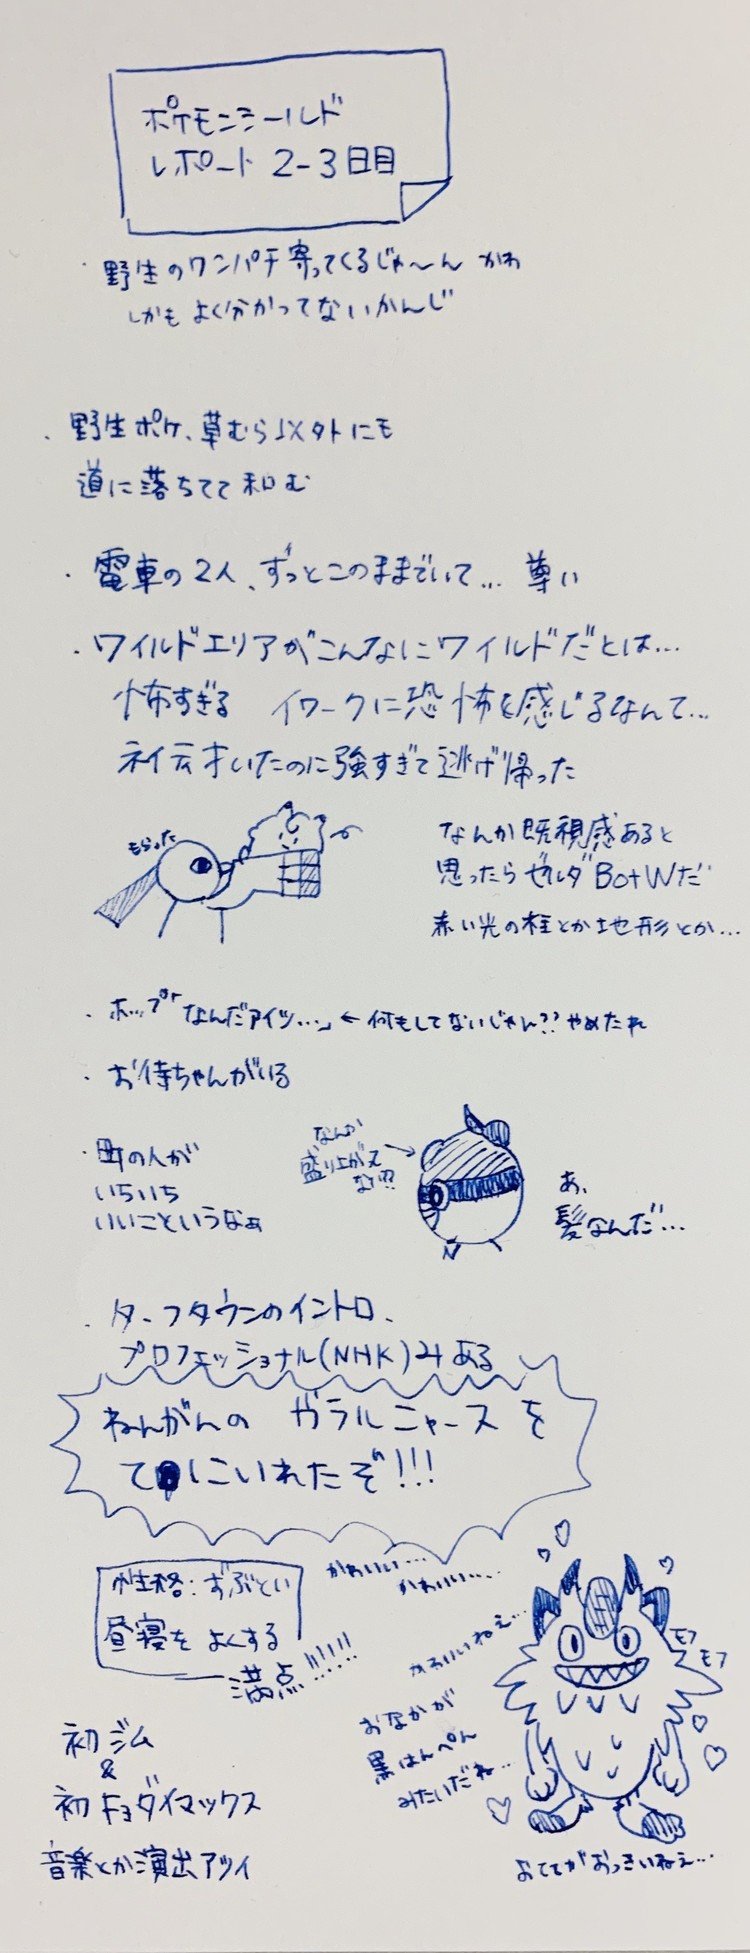 ポケモンシールド
レポート 2-3日目
・野生のワンパチ寄ってくるじゃ〜ん かわ
しかもよく分かってないかんじ
・野生ポケ、草むら以外にも
道に落ちてて和む
・電車の2人、ずっとこのままでいて… 尊い
・ワイルドエリアがこんなにワイルドだとは…
怖すぎる イワークに恐怖を感じるなんて…
ネイティオいたのに強すぎて逃げ帰った
もらった
なんか既視感あると
思ったらゼルダBotWだ
赤い光の柱とか地形とか…
・ホップ「なんだアイツ…」←何もしてないじゃん?? やめたれ
・お侍ちゃんがいる
・町の人が
いちいち
いいこというなぁ
なんか
盛り上がって
ない??
あ、
髪なんだ…
・ターフタウンのイントロ、
プロフェッショナル(NHK)みある
ねんがんの ガラルニャースを
てにいれたぞ!!!
性格:ずぶとい
昼寝をよくする
満点!!!!!!
かわいい…
かわいい…
かわいいねえ…
おなかが
黒はんぺん
みたいだね…
モフ
モフ
おててがおっきいねえ…
初ジム
&
初キョダイマックス
音楽とか演出アツイ